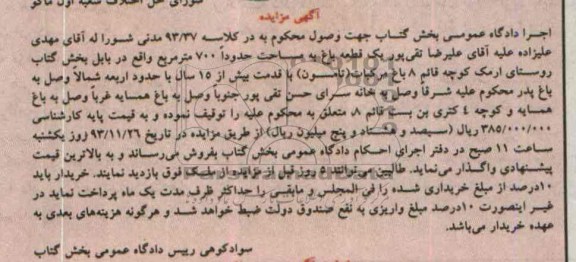 شورای حل اختلاف شعبه اول ماکو
آگهی مزایده
اجرا دادگاه عمومی بخش گتاب جهت وصول محکوم به در کلاسه ۹۳/۳۷ مدنی شورا له آقای مهدی
علیزاده علیه آقای علیرضا تقی‌پور یک قطعه باغ به مساحت حدوداً ۷۰۰ مترمربع واقع در بابل بخش گتاب
روستای ارمک کوچه قائم ۸ باغ مرکبات (تامسون) با قدمت بیش از ۱۵ سال با حدود اربعه شمالاً وصل به
باغ پدر محکوم علیه شرقاً وصل به خانه سرای حسن تقی پور جنوباً وصل به باغ همسایه غرباً وصل به باغ
همسایه و کوچه ٤ کتری بن بست قائم ۸ متعلق به محکوم علیه را توقیف نموده و به قیمت پایه کارشناسی
۳۸۵/۰۰۰/۰۰۰ ریال (سیصد و هشتاد و پنج میلیون ریال) از طریق مزایده در تاریخ ۹۳/۱۱/۲۶ روز یکشنبه
ساعت ۱۱ صبح در دفتر اجرای احکام دادگاه عمومی بخش گتاب بفروش می‌رساند و به بالاترین قیمت
پیشنهادی واگذار می‌نماید. طالبین می‌توانند ۵ روز قبل از مزایده از ملک فوق بازدید نمایند. خریدار باید
۱۰درصد از مبلغ خریداری شده را فی المجلس و مابقی را حداکثر ظرف مدت یک ماه پرداخت نماید در
غیر اینصورت ۱۰درصد مبلغ واریزی به نفع صندوق دولت ضبط خواهد شد و هرگونه هزینه‌های بعدی به
عهده خریدار می‌باشد.
سوادکوهی رییس دادگاه عمومی بخش گتاب